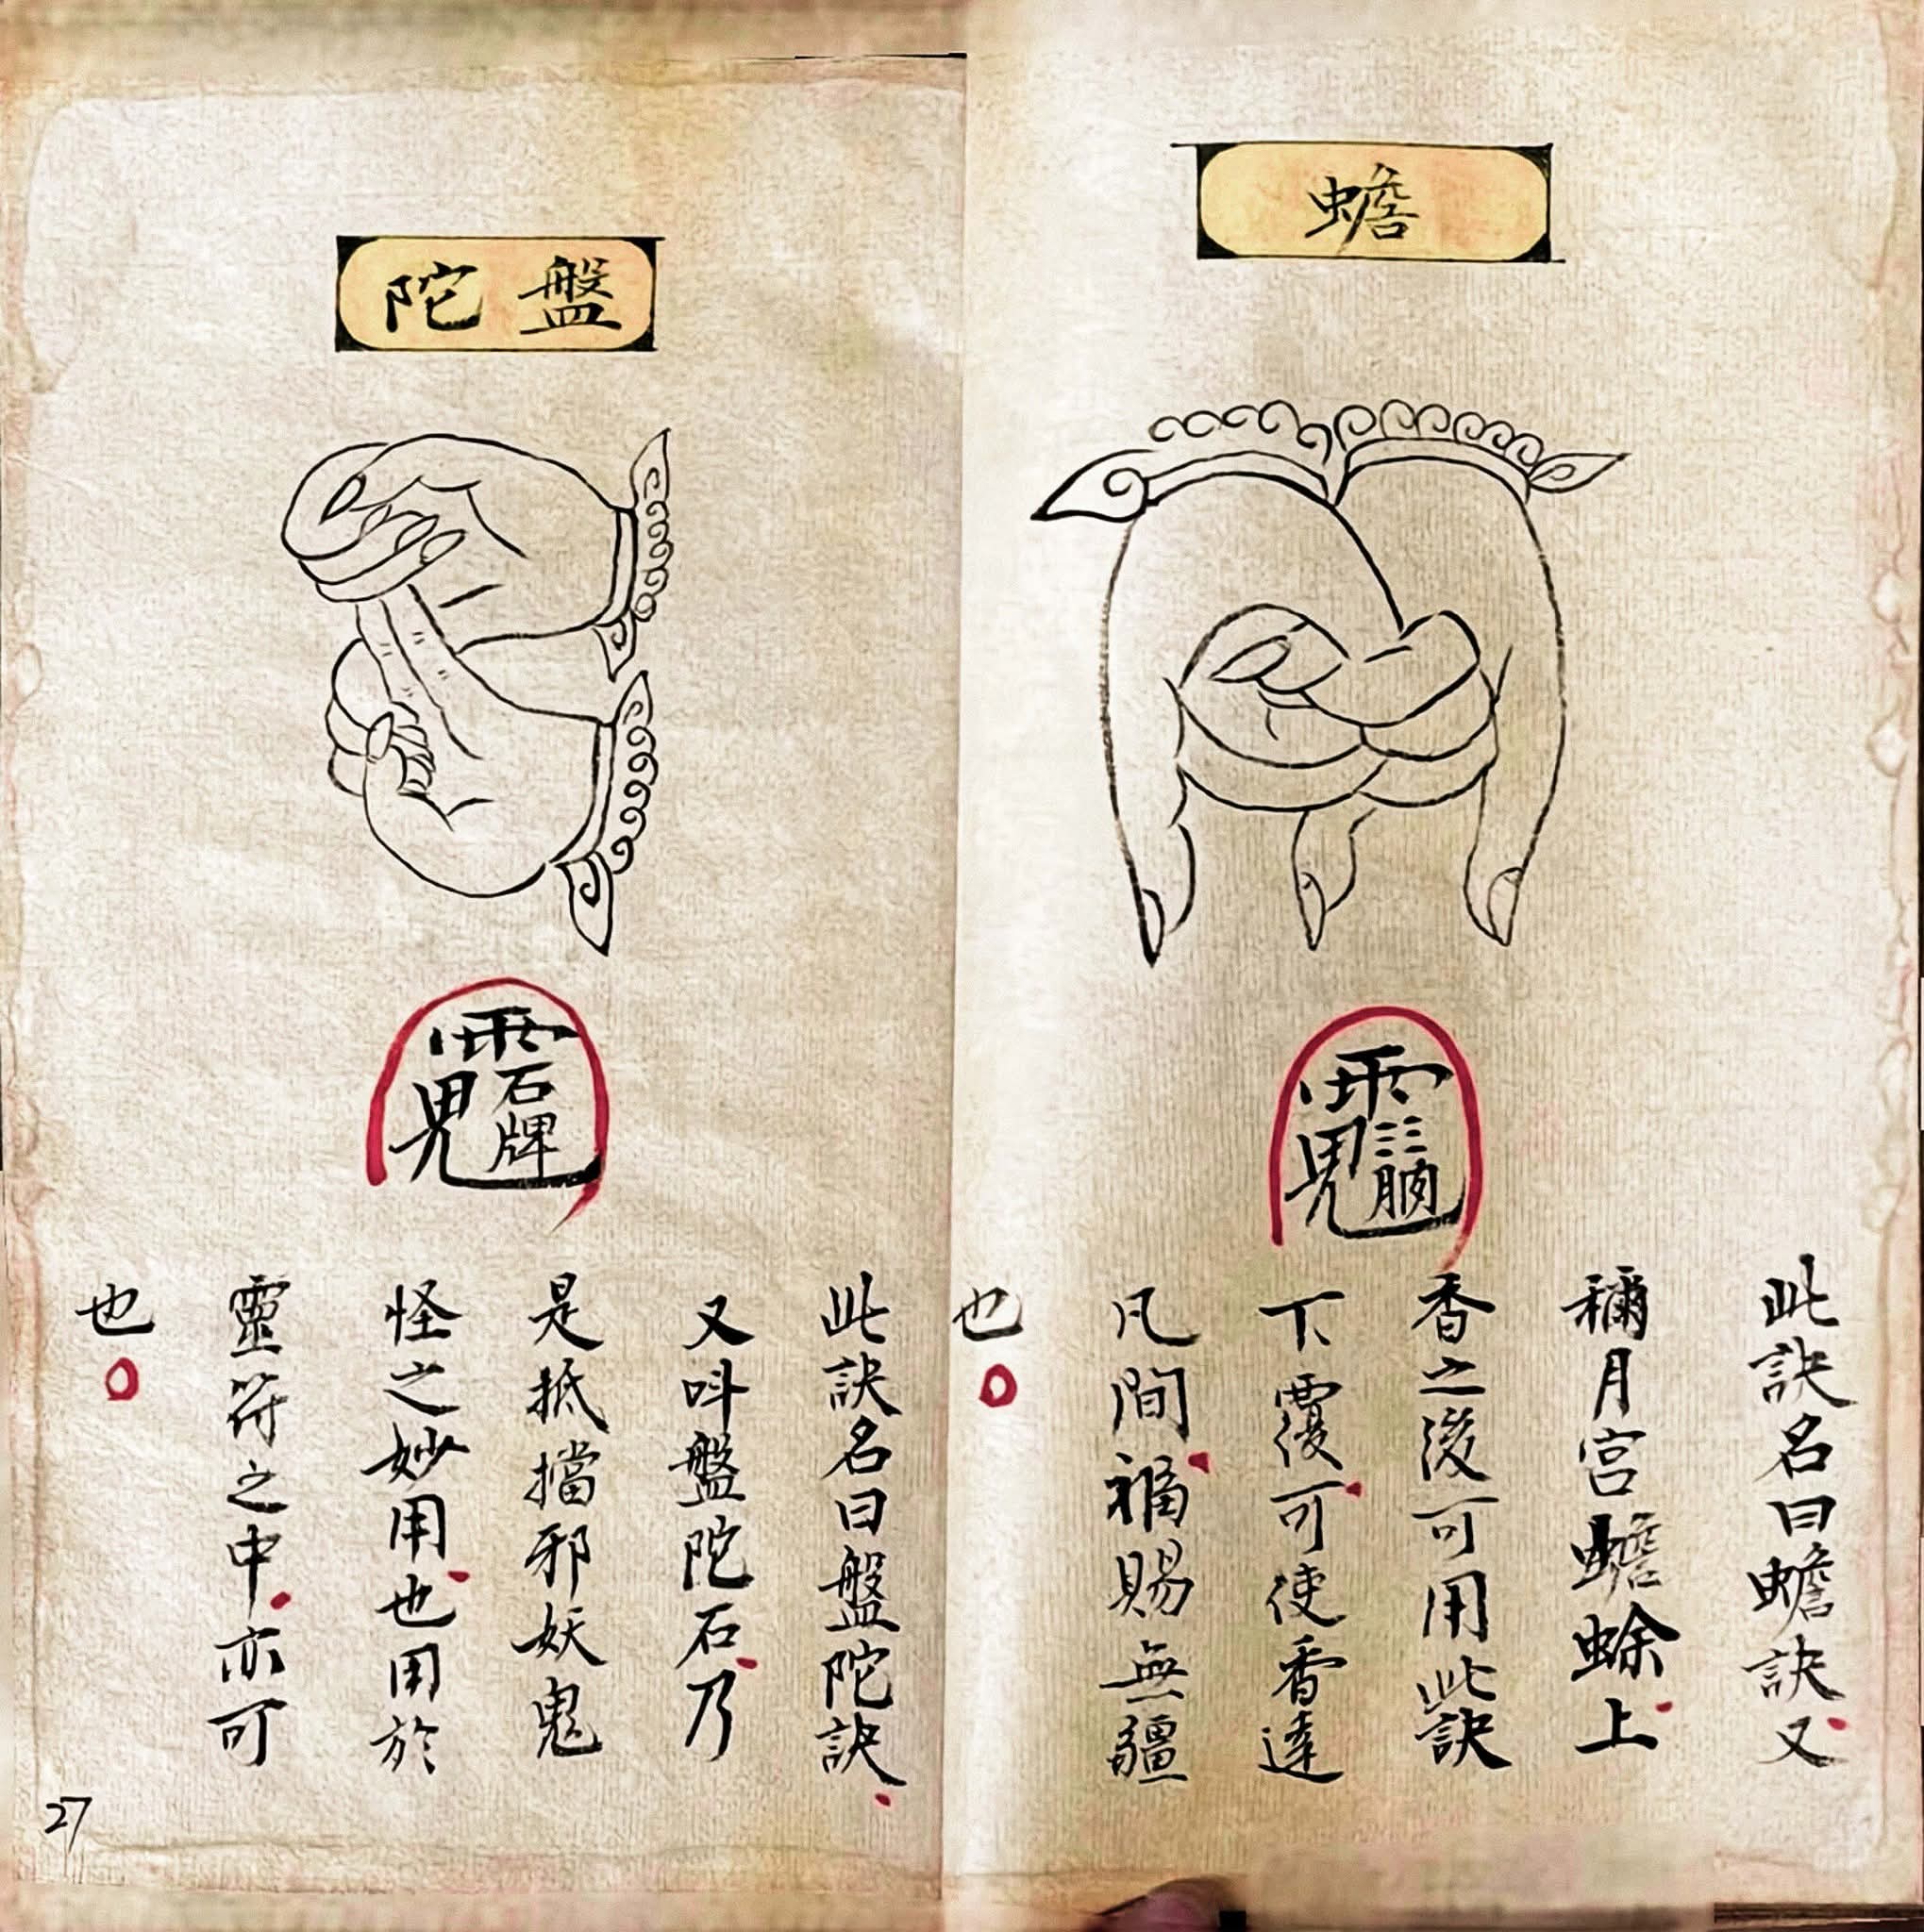 蟾
此訣名曰蟾訣又
稱月宮蟾蜍上
香之後可用此訣
下覆可使香達
凡間福賜無疆
也
盤陀
此訣名曰盤陀訣
又叫盤陀石乃
是抵擋邪妖鬼
怪之妙用也用於
靈符之中亦可
也
27